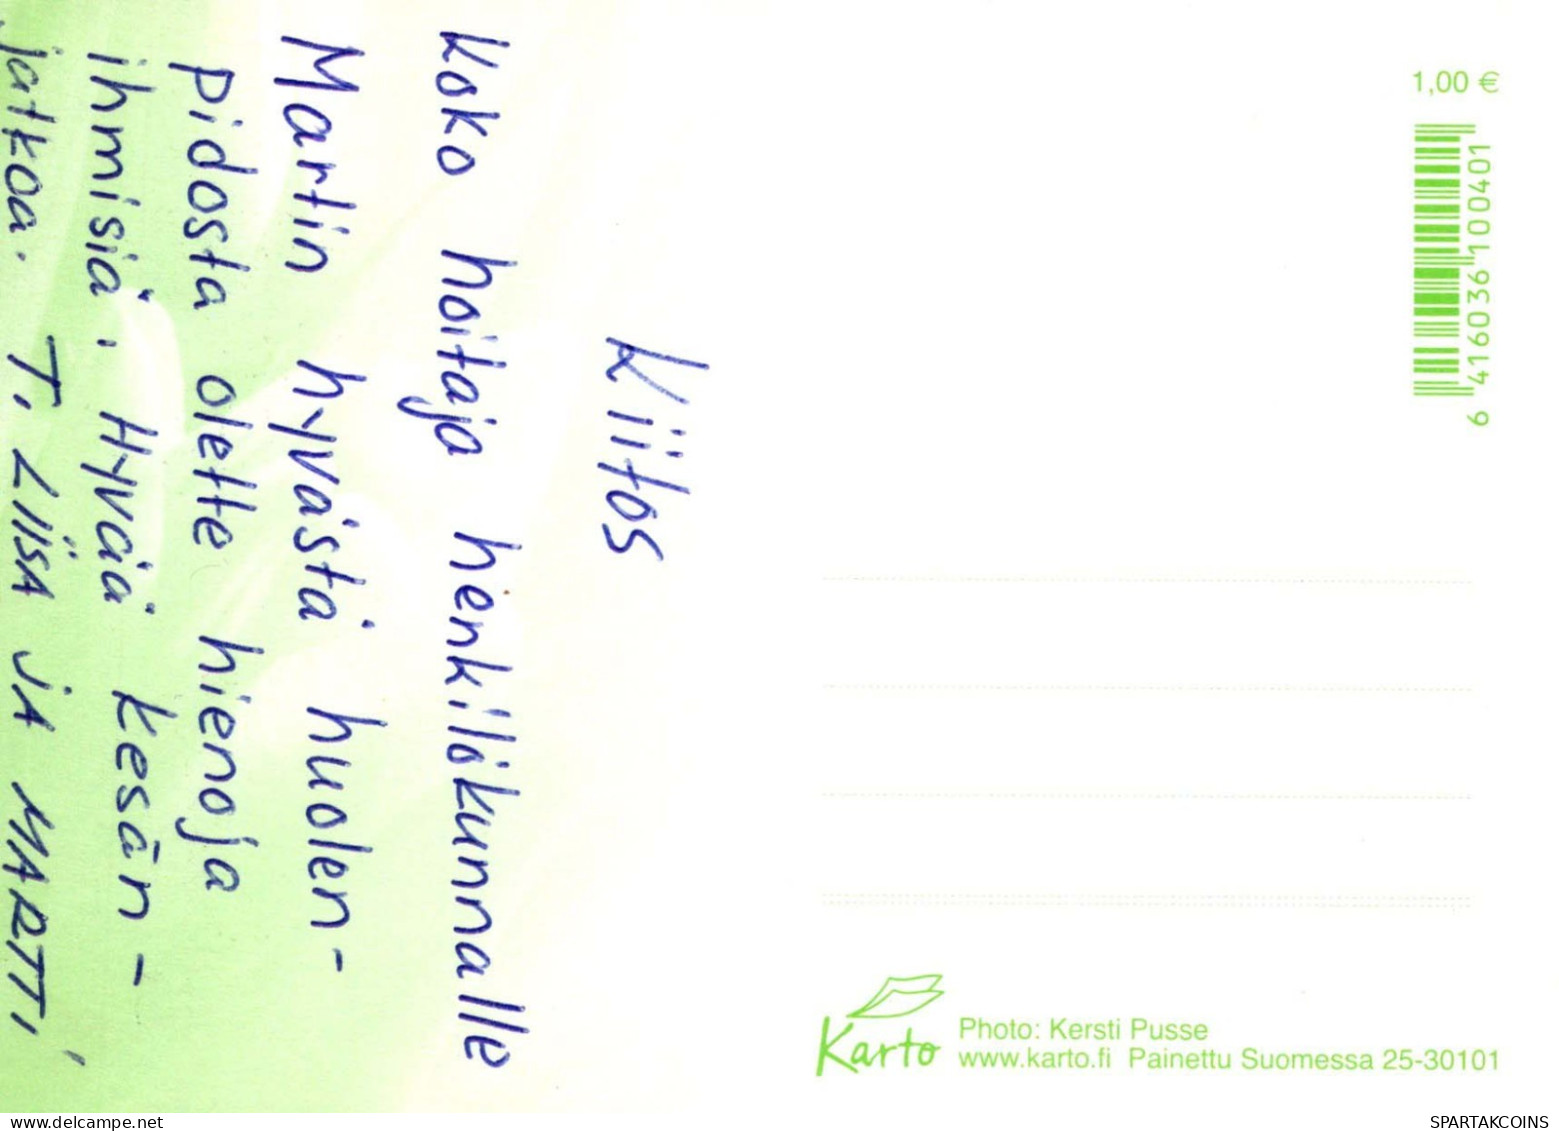 Kiitos
Koko hoitaja henkilökunnalle
Martin hyvästä huolen-
pidosta olette hienoja
ihmisiä. Hyvää kesän-
jatkoa. T. LIISA JA MARTTI
1,00 €
6 416036 100401
Karto
Photo: Kersti Pusse
www.karto.fi Painettu Suomessa 25-30101
delcampe.net
SPARTAKCOINS